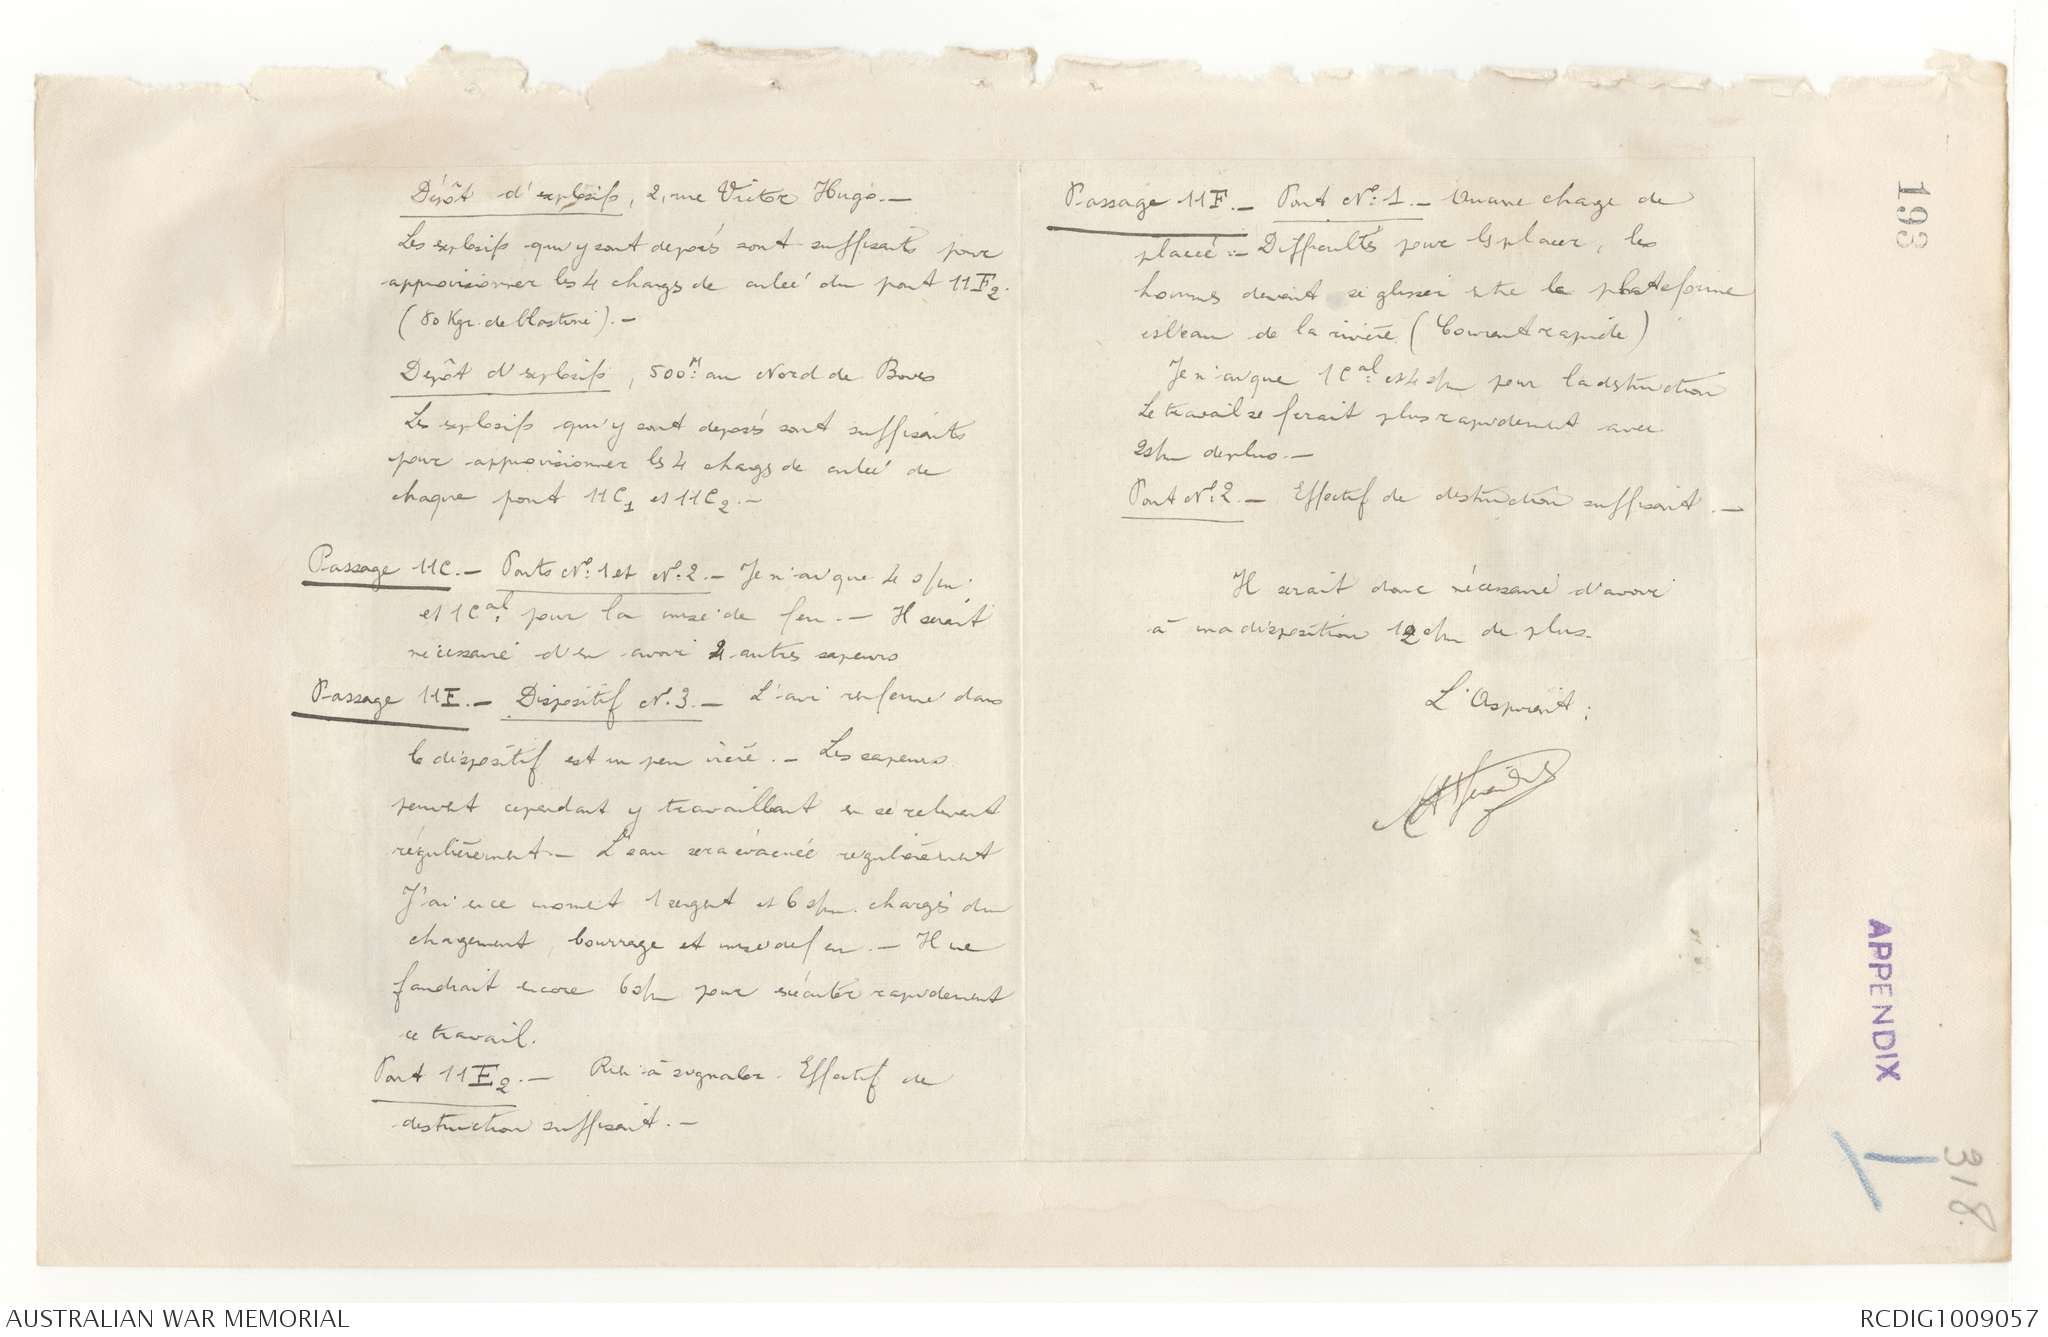 Dépôt d'explosifs, 2, rue Victor Hugo.-
Les explosifs qui y sont déposés sont suffisants pour
approvisionner les 4 charges de culée du pont 11E2.
(80 Kgr. de blastine).-
Dépôt d'explosifs, 500m au Nord de Boves
Les explosifs qui y sont déposés sont suffisants
pour approvisionner les 4 charges de culée de
chaque pont 11C1 et 11C2.-
Passage 11C.- Ponts No. 1 et No. 2.- Je n'ai que 4 s/m.
et 1 Cal pour la mise de feu.- Il serait
nécessaire d'en avoir 4 autres sapeurs
Passage 11E.- Dispositif No. 3.- L'air renfermé dans
le dispositif est un peu vicié.- Les sapeurs
peuvent cependant y travaillant en se relevant
régulièrement.- L'eau sera évacuée régulièrement
J'ai en ce moment 1 sergent et 6 s/m. chargés du
chargement, bourrage et mise de feu.- Il me
faudrait encore 6 s/m pour exécuter rapidement
ce travail.
Pont 11E2.- Rien à signaler. Effectif de
destruction suffisant.-
Passage 11F.- Pont No. 1.- charge de
placée.- Difficultés pour les placer, les
hommes devant se glisser entre la plateforme
et l'eau de la rivière (Courant rapide)
Je n'ai que 1 Cal et 4 s/m pour la destruction
Le travail se ferait plus rapidement avec
2 s/m de plus.-
Pont No. 2.- Effectif de destruction suffisant.-
Il serait donc nécessaire d'avoir
à ma disposition 12 s/m de plus.
L'Aspirant;
193
APPENDIX
1
318
AUSTRALIAN WAR MEMORIAL
RCDIG1009057